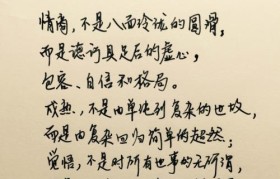 情商，不是八面玲珑的圆滑，
而是德行具足后的虚心，
包容、自信和格局。
成熟，不是由单纯到复杂的世故，
而是由复杂回归简单的超然；
觉悟，不是对所有世事的无所谓，